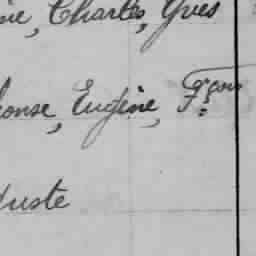 ne, Charles, Yves
onse, Eugène, Fçois
uste